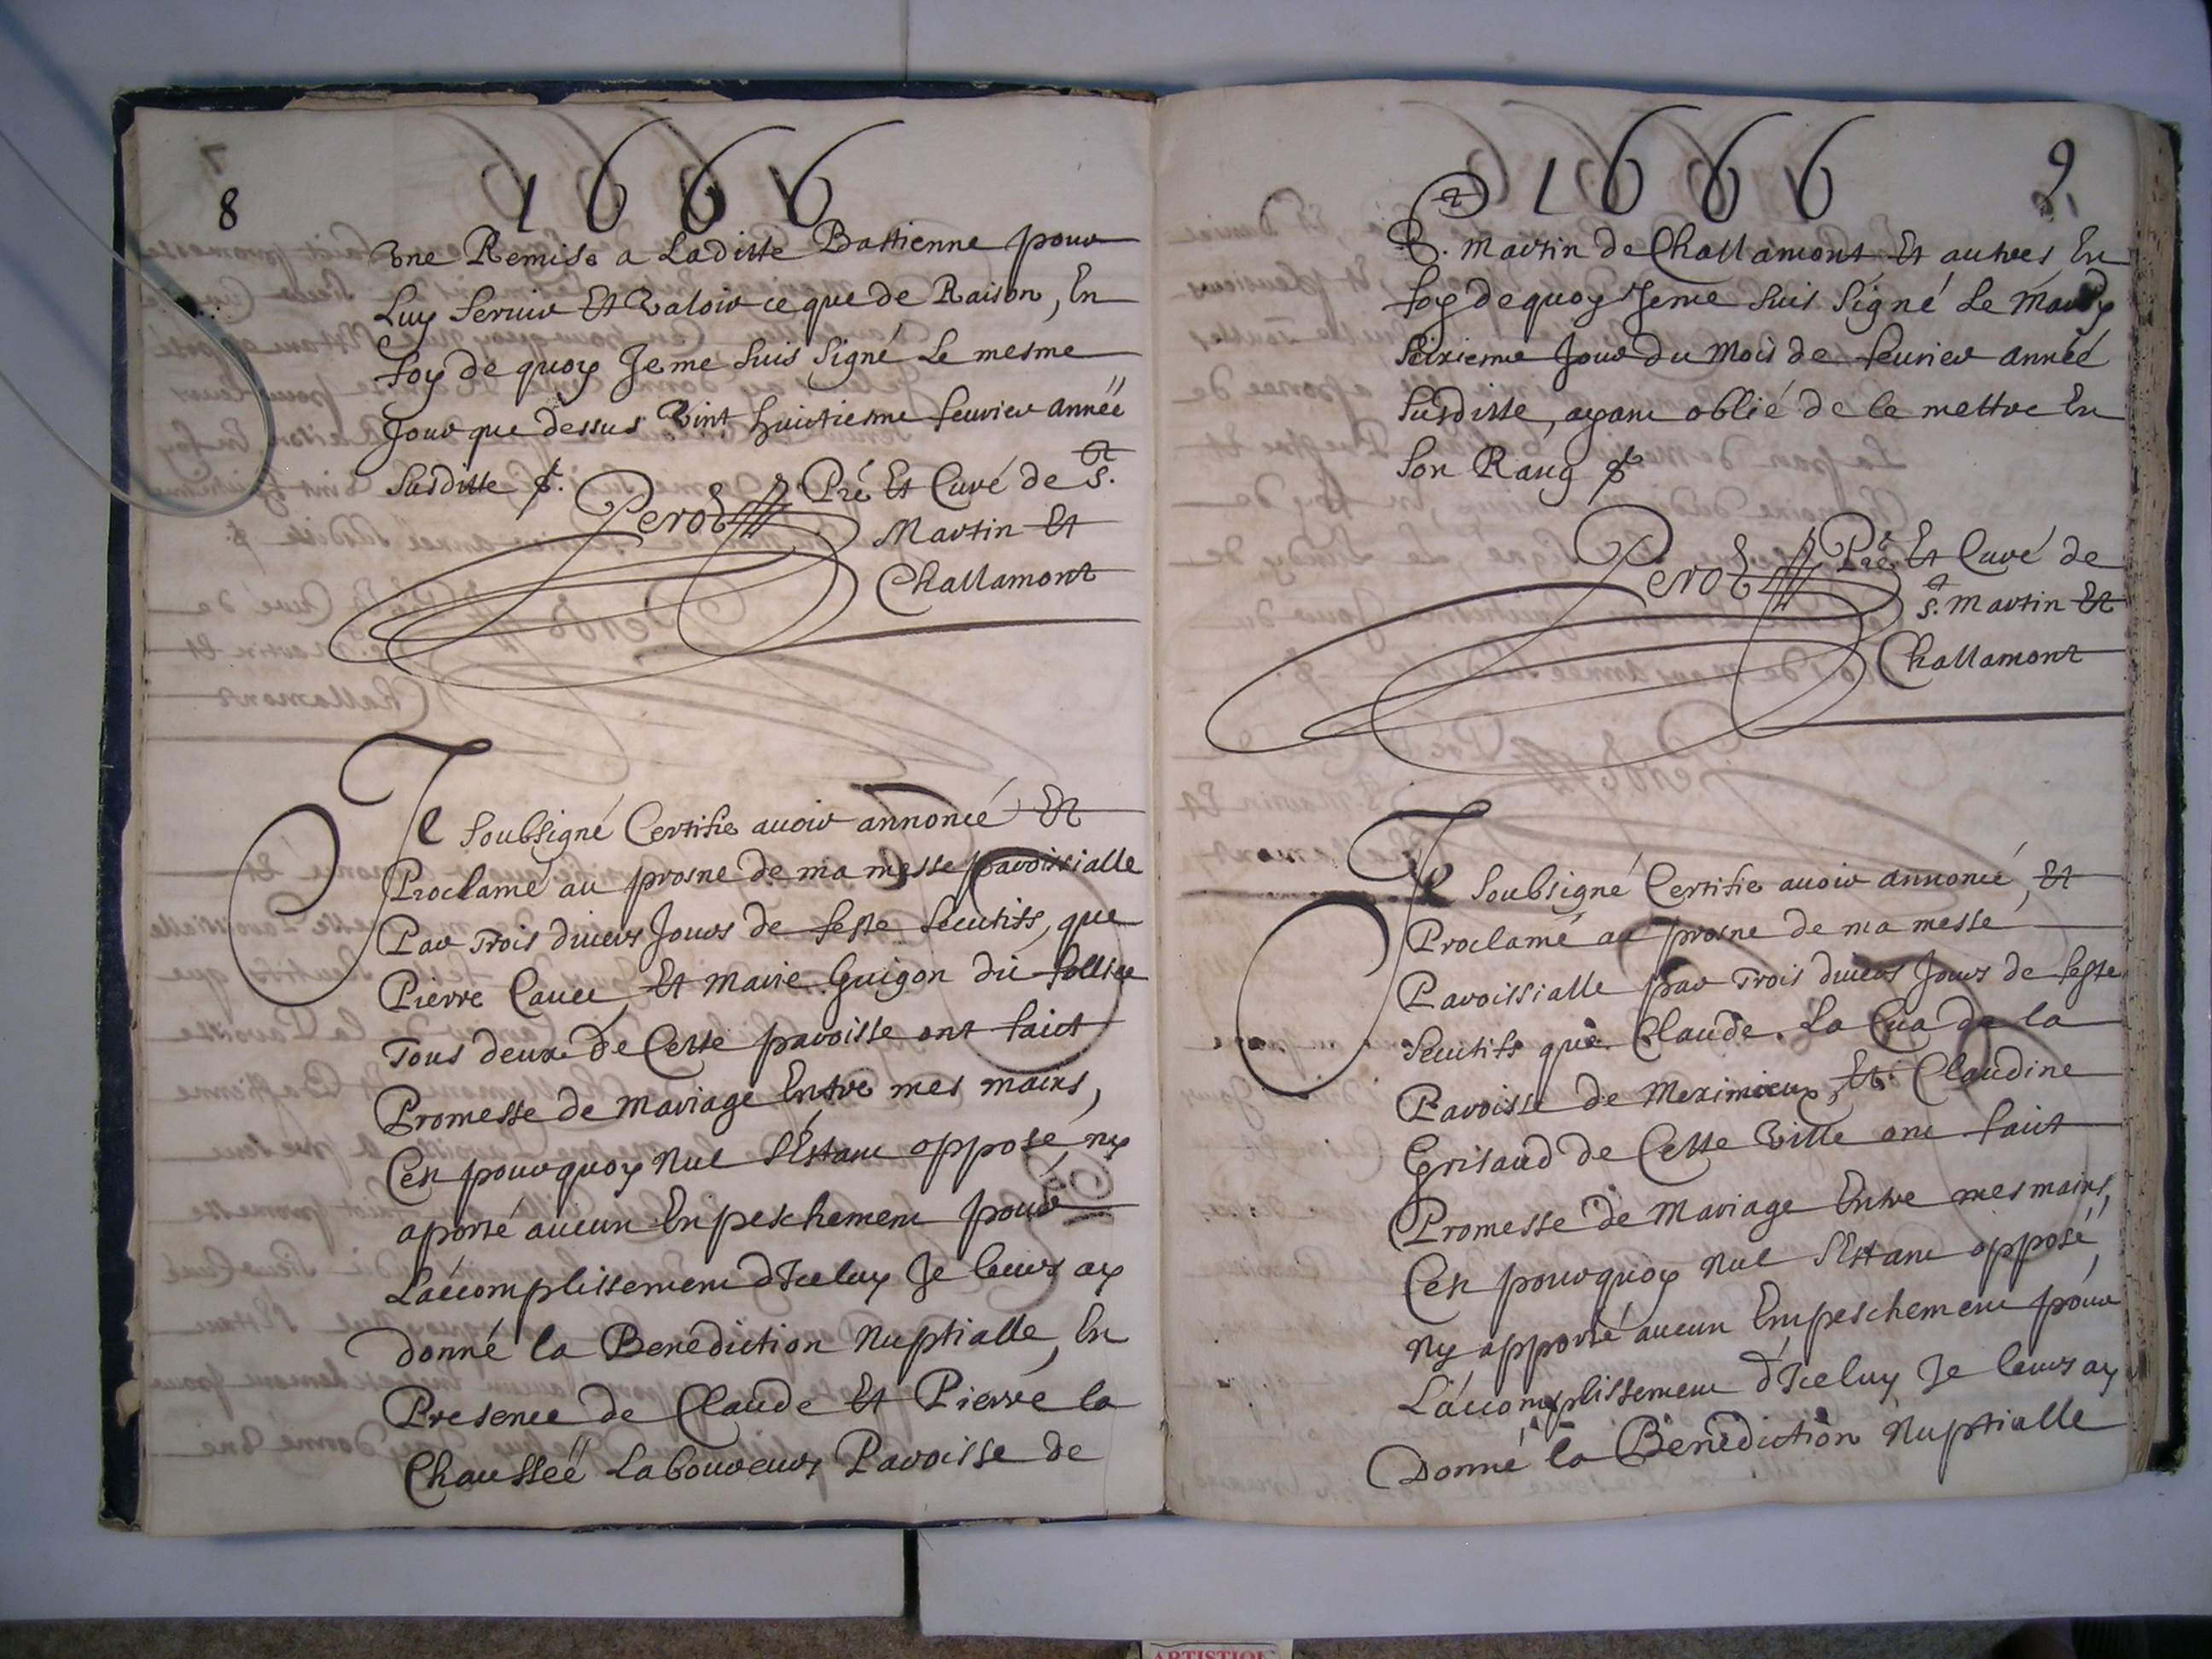 8
1666
Vne Remise a Laditte Bastienne pour
Luy Seruir Et Valoir ce que de Raison, En
foy de quoy Je me suis Signé Le mesme
Jour que dessus Vint huictiesme feurier année
Susditte
Perod Pré Et Curé de St.
Martin Et
Challamont
Je Soubsigné Certifie auoir annoncé Et
Proclamé au prosne de ma messe paroissialle
Par Trois diuers Jours de feste Secutifs, que
Pierre Et Marie Guigon
Tous deux de Cette paroisse ont faict
Promesse de Mariage Entre mes mains,
Cest pourquoy Nul s'Estant opposé, ny
aporté aucun Enpeschement pour
L'accomplissement d'Iceluy Je leurs ay
Donné la Benediction Nuptialle, En
Presence de Claude Et Pierre la
Chausseé Laboureurs Paroisse de
9
1666
St. Martin de Challamont Et autres En
foy de quoy Je me suis Signé Le Mardy
Seixieme Jour du Mois de feurier année
Susditte, ayant oblié de le mettre En
Son Rang
Perod Pré Et Curé de
St. Martin Et
Challamont
Je Soubsigné Certifie auoir annoncé, Et
Proclamé au prosne de ma messe
Paroissialle par Trois diuers Jours de feste
Secutifs que Claude La Cua de la
Paroisse de Meximieux, Et Claudine
Grisaud de Cette Ville ont faict
Promesse de Mariage Entre mes mains,
Cest pourquoy Nul s'Estant opposé,
Ny apporté aucun Empeschement pour
L'accomplissement d'Iceluy Je leurs ay
Donné la Benediction Nuptialle